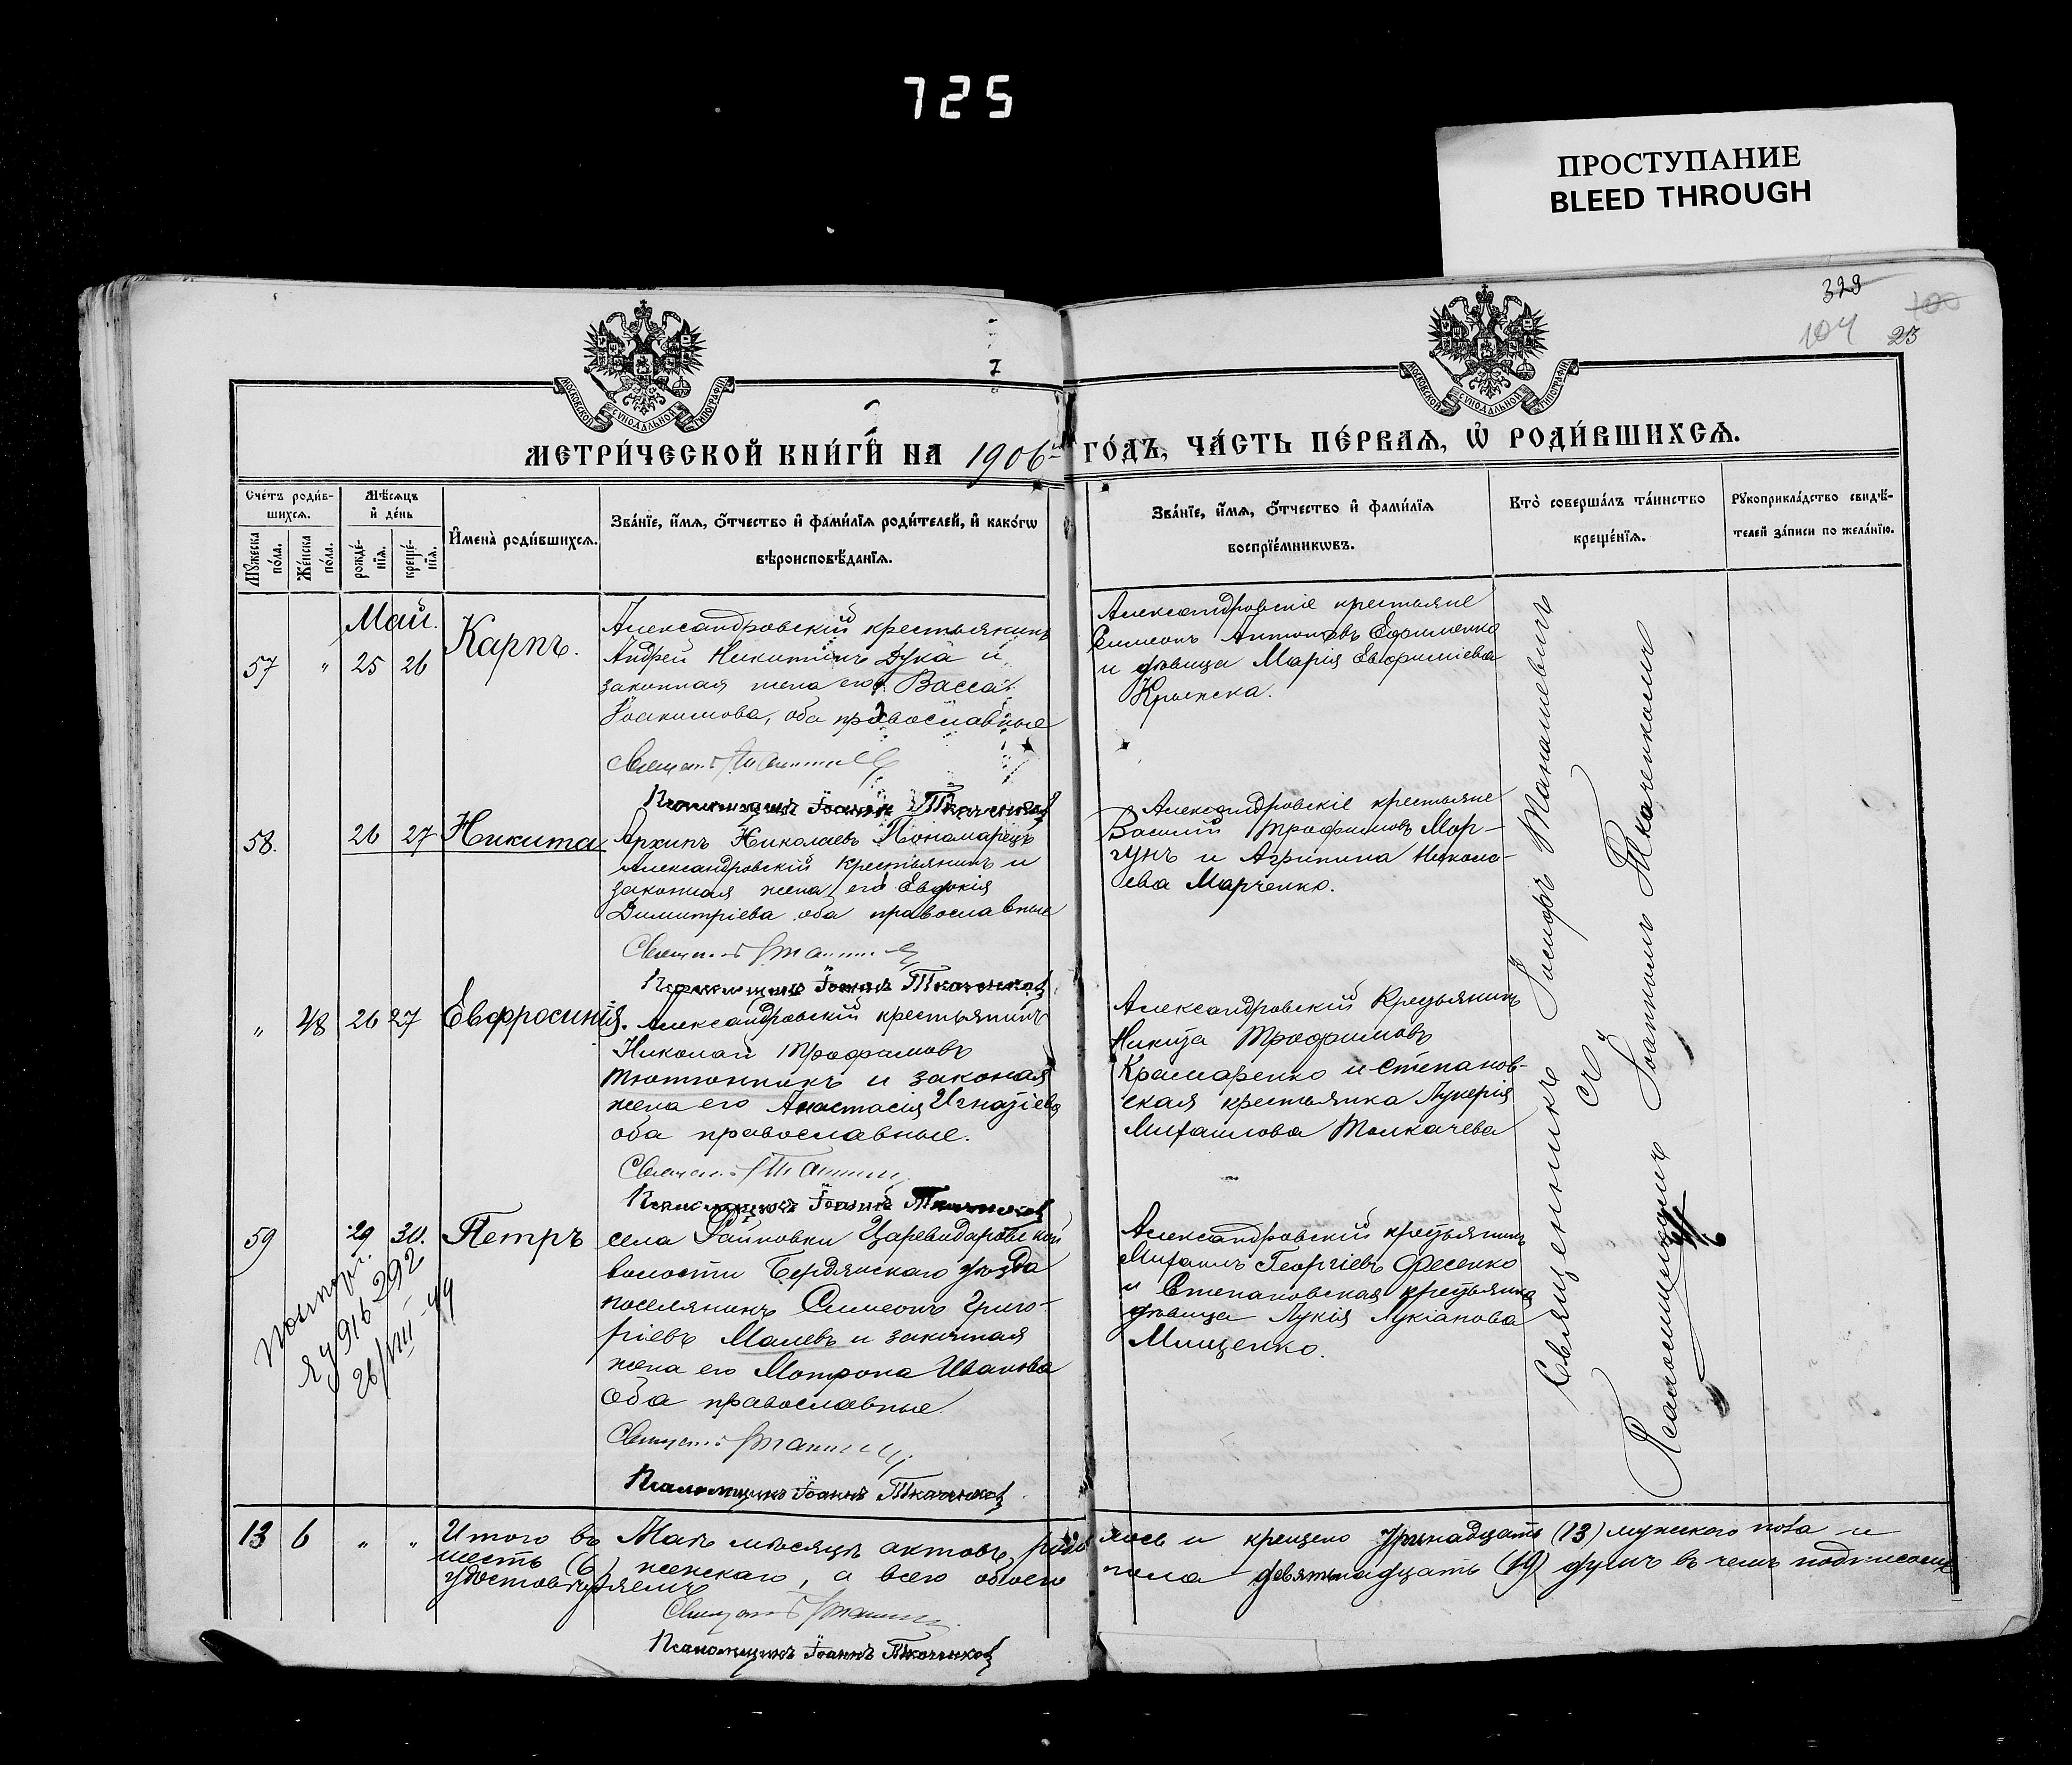 725
ПРОСТУПАНИЕ
BLEED THROUGH
7
329
100
104
213
МОСКОВСКОЙ СУНОДАЛЬНОЙ ТИПОГРАФІИ
МОСКОВСКОЙ СУНОДАЛЬНОЙ ТИПОГРАФІИ
МЕТРИ́ЧЕСКОЙ КНИ́ГИ НА 1906й ГО́ДЪ, ЧА́СТЬ ПЕ́РВАЯ, Ѡ РОДИ́ВШИХСЯ.
Сче́тъ роди́в-
шихся.
Му́жеска по́ла.
Же́нска по́ла.
Мѣ́сяцъ
и де́нь
рожде́-нія.
креще́-нія.
Имена̀ роди́вшихся.
Зва́ніе, и́мя, о́тчество и фами́лія роди́телей, и како́гѡ
вѣроисповѣ́данія.
Зва́ніе, и́мя, о́тчество и фами́лія
воспріе́мникѡвъ.
Кто̀ соверша́лъ та́инство
креще́нія.
Рукоприкла́дство свидѣ́-
телей за́писи по жела́нію.
Май.
57 " 25 26 Карпъ.
Александровскій крестьянинъ
Андрей Никитинъ Дука и
законная жена его Васса
Іоакимова, оба православные
Псаломщикъ Іоаннъ Ткаченковъ
Александровскіе крестьяне
Симеонъ Антоновъ Ефименко
и дѣвица Марія Евфиміева
58. 26 27 Никита
Архипъ Николаевъ Пономарецъ
Александровскій крестьянинъ и
законная жена его Евдокія
Димитріева оба православные
Псаломщикъ Іоаннъ Ткаченковъ
Александровскіе крестьяне
Василій Трофимовъ Мор-
гунъ и Агрипина Никола-
ева Марченко.
" 48 26 27 Евфросинія.
Александровскій крестьянинъ
Николай Трофимовъ
Тютюнникъ и законая
жена его Анастасія Игнатіева
оба православные.
Псаломщикъ Іоаннъ Ткаченковъ
Александровскій Крестьянинъ
Никита Трофимовъ
Крамаренко и Степанов-
ская крестьянка Лукерія
Михаилова Толкачева
59 29 30. Петръ
села Райновки Царевидаровской
волости Бердянскаго уѣзда
поселянинъ Симеонъ Григо-
ріевъ Малевъ и законная
жена его Мотрона Иванова
Оба православные
Псаломщикъ Іоаннъ Ткаченковъ
Александровскій крестьянинъ
Михаилъ Георгіевъ Фесенко
и Степановская крестьянка
дѣвица Лукія Лукіанова
Мищенко.
916 292
26/VIII-49
Священникъ Іосифъ
съ
Псаломщикомъ Іоанномъ Ткаченкомъ
13 6 " " Итого въ Маѣ мѣсяцѣ актовъ роди лось и крещено тринадцать (13) мужского пола и
шесть (6) женскаго, а всего обоего пола девятнадцать (19) душъ въ чемъ подписомъ
удостовѣряемъ
Псаломщикъ Іоаннъ Ткаченковъ